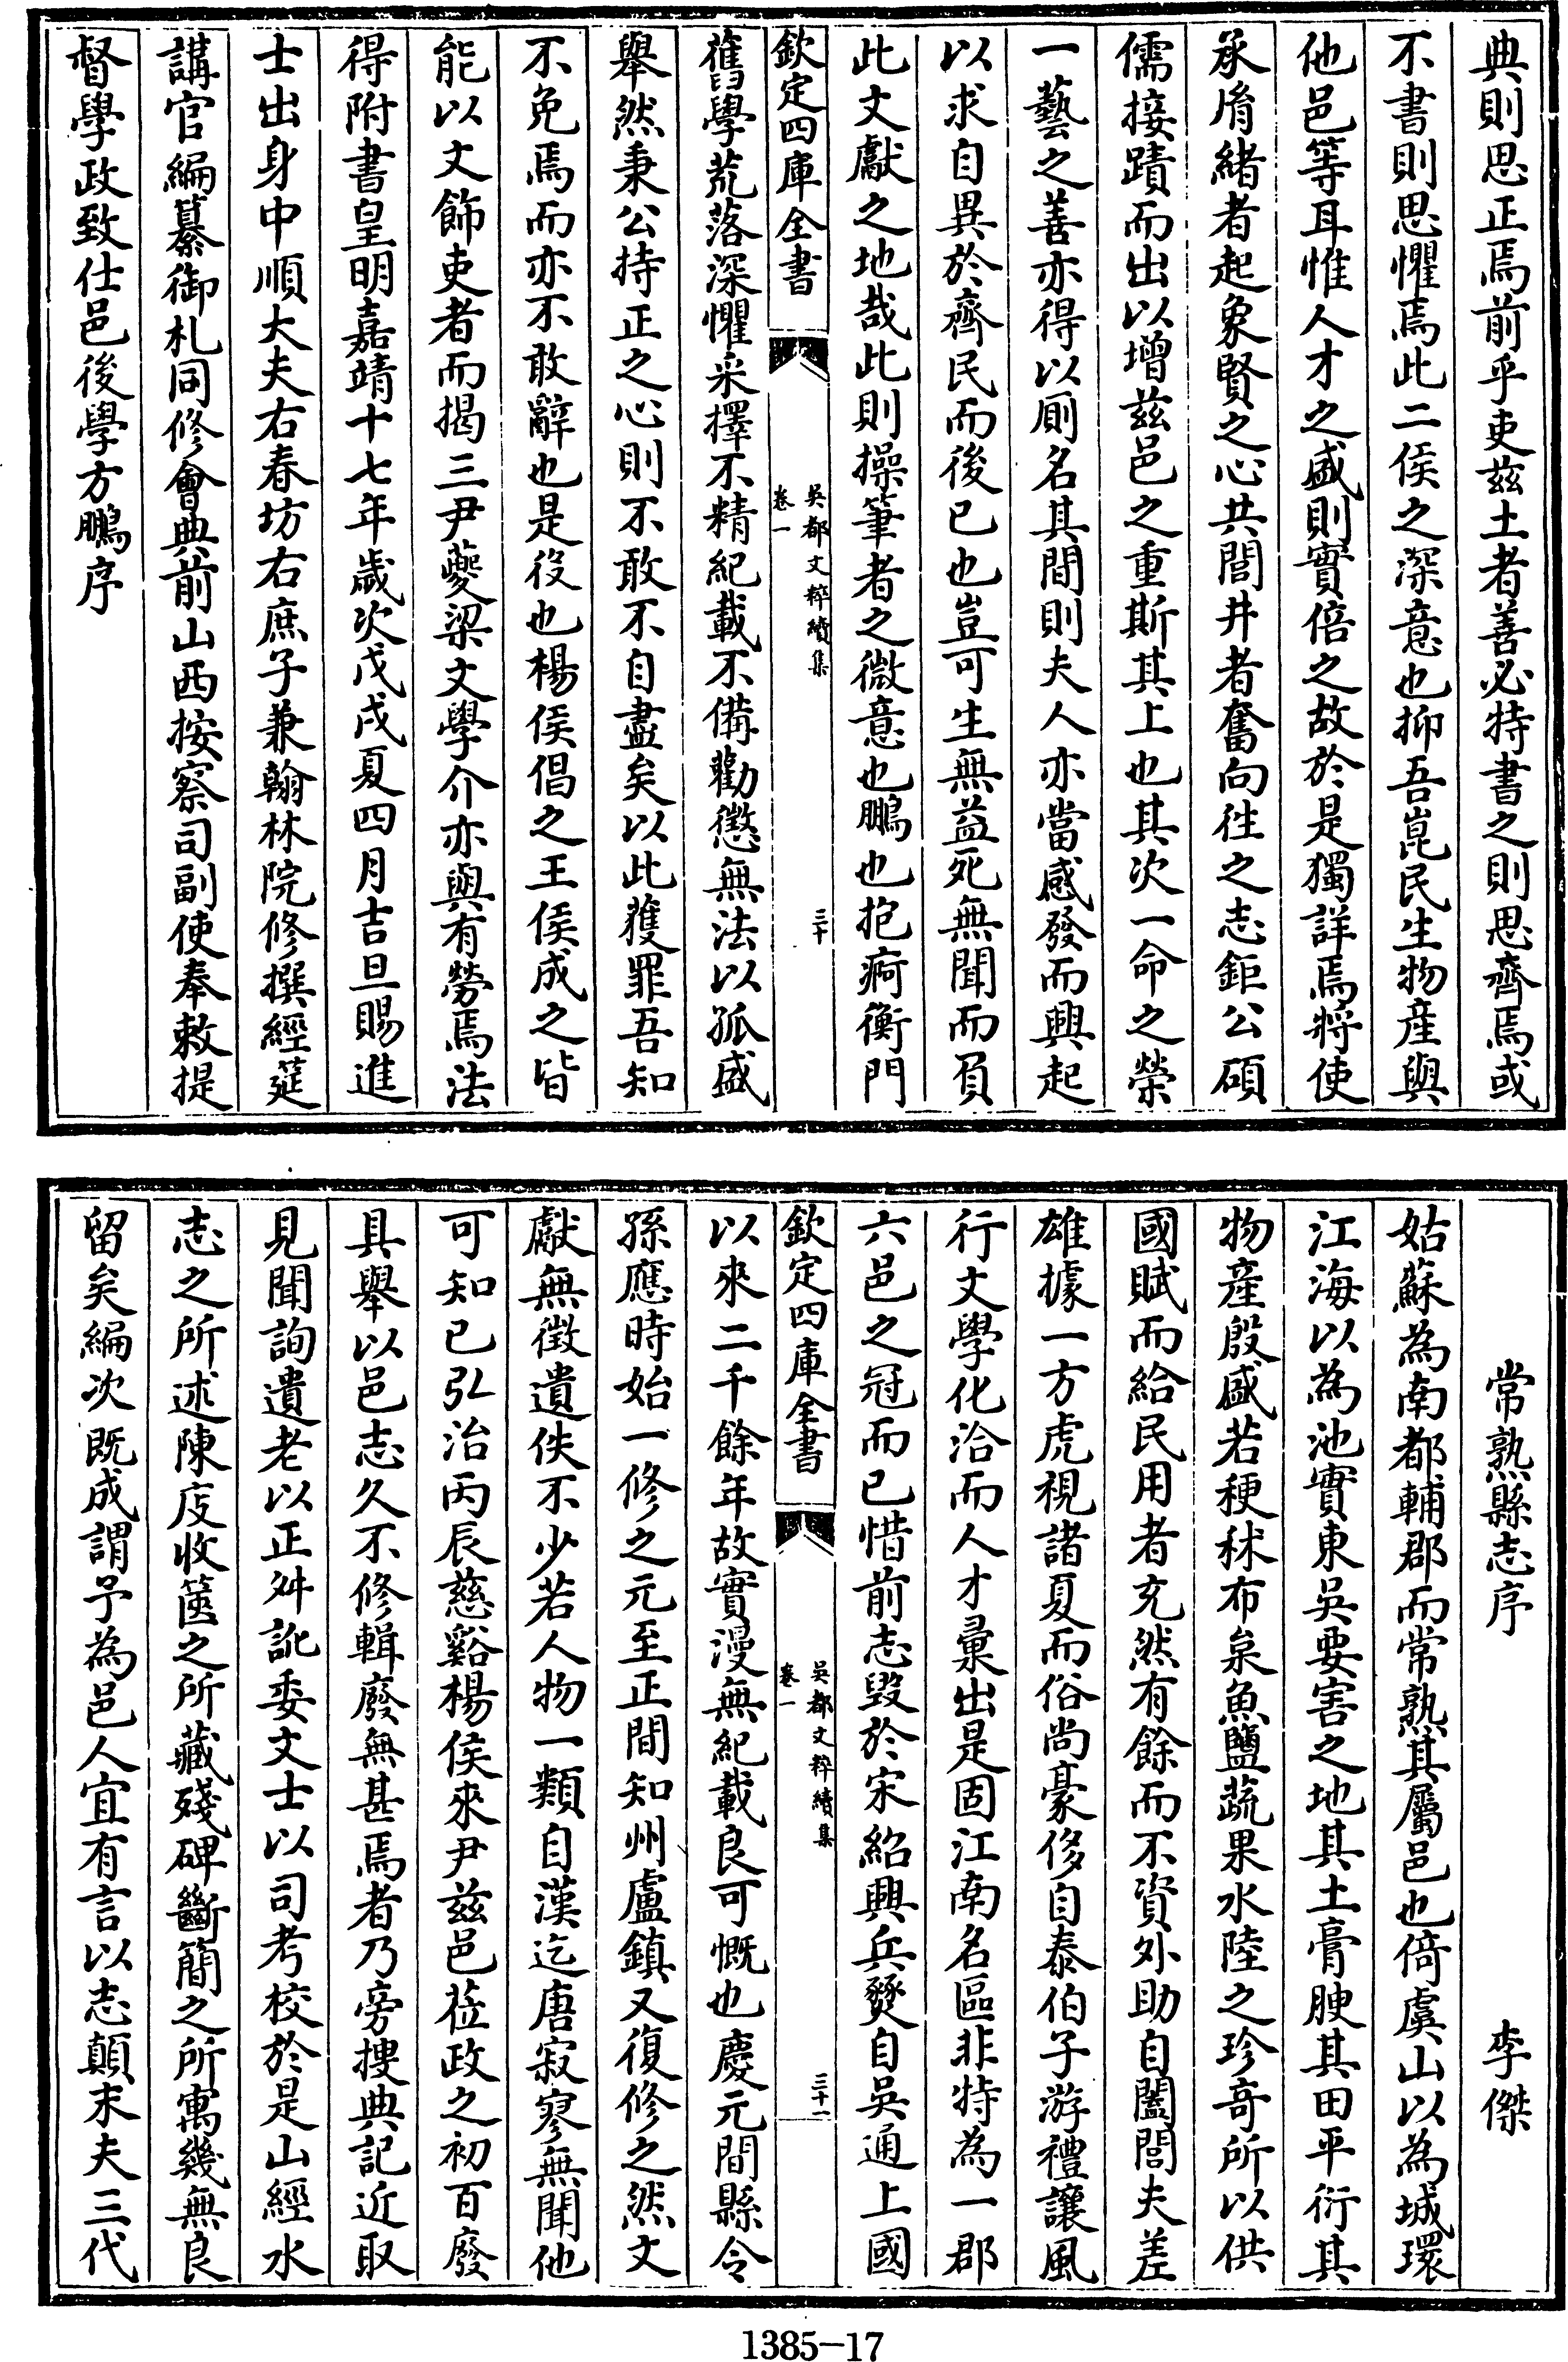 典則思正焉前乎吏兹土者善必特書之則思齊焉或
不書則思懼焉此二侯之深意也抑吾崑民生物産與
他邑等耳惟人才之盛則實倍之故於是獨詳焉將使
承脩緒者起象賢之心共閭井者奮向徃之志鉅公碩
儒接蹟而出以增兹邑之重斯其上也其次一命之榮
一藝之善亦得以厠名其間則夫人亦當感發而興起
以求自異於齊民而後已也豈可生無益死無聞而負
此文獻之地哉此則操筆者之微意也鵬也抱痾衡門
欽定四庫全書
吳都文粹續集
卷一
三十
舊學荒落深懼采擇不精紀載不備勸懲無法以孤盛
舉然秉公持正之心則不敢不自盡矣以此獲罪吾知
不免焉而亦不敢辭也是役也楊侯倡之王侯成之皆
能以文飾吏者而揭三尹夔梁文學介亦與有勞焉法
得附書皇明嘉靖十七年歲次戊戌夏四月吉旦賜進
士出身中順大夫右春坊右庶子兼翰林院修撰經筵
講官編纂御札同修會典前山西按察司副使奉敕提
督學政致仕邑後學方鵬序
常熟縣志序 李傑
姑蘇為南都輔郡而常熟其屬邑也倚虞山以為城環
江海以為池實東吳要害之地其土膏腴其田平衍其
物産殷盛若稉秫布枲魚鹽蔬果水陸之珍奇所以供
國賦而給民用者充然有餘而不資外助自闔閭夫差
雄據一方虎視諸夏而俗尚豪侈自泰伯子游禮讓風
行文學化洽而人才彙出是固江南名區非特為一郡
六邑之冠而已惜前志毀於宋紹興兵燹自吳通上國
欽定四庫全書
吳都文粹續集
卷一
三十一
以來二千餘年故實漫無紀載良可慨也慶元間縣令
孫應時始一修之元至正間知州盧鎮又復修之然文
獻無徵遺佚不少若人物一類自漢迄唐寂寥無聞他
可知已弘治丙辰慈谿楊侯來尹兹邑莅政之初百廢
具舉以邑志久不修輯廢無甚焉者乃旁搜典記近取
見聞詢遺老以正舛訛委文士以司考校於是山經水
志之所述陳庋收篋之所藏殘碑斷簡之所寓幾無良
留矣編次既成謂予為邑人宜有言以志顛末夫三代
1385-17